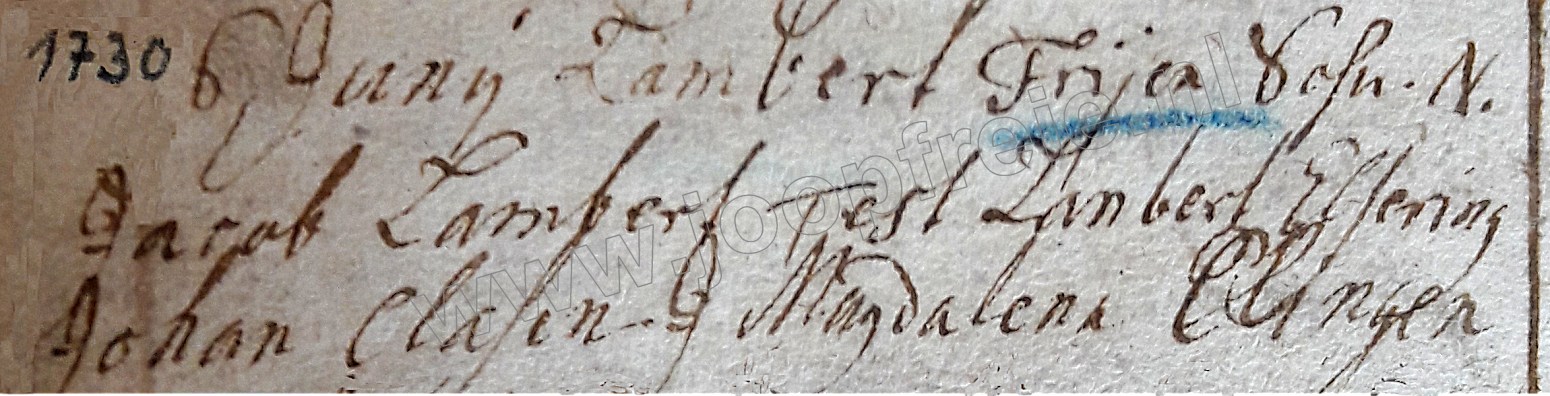 1730 6 Juny Lambert Frijea Sohn. N.
Jacob Lambert Test Lambert Essering
Johan Clasen J Magdalena Clingen
www.joopfreic.nl